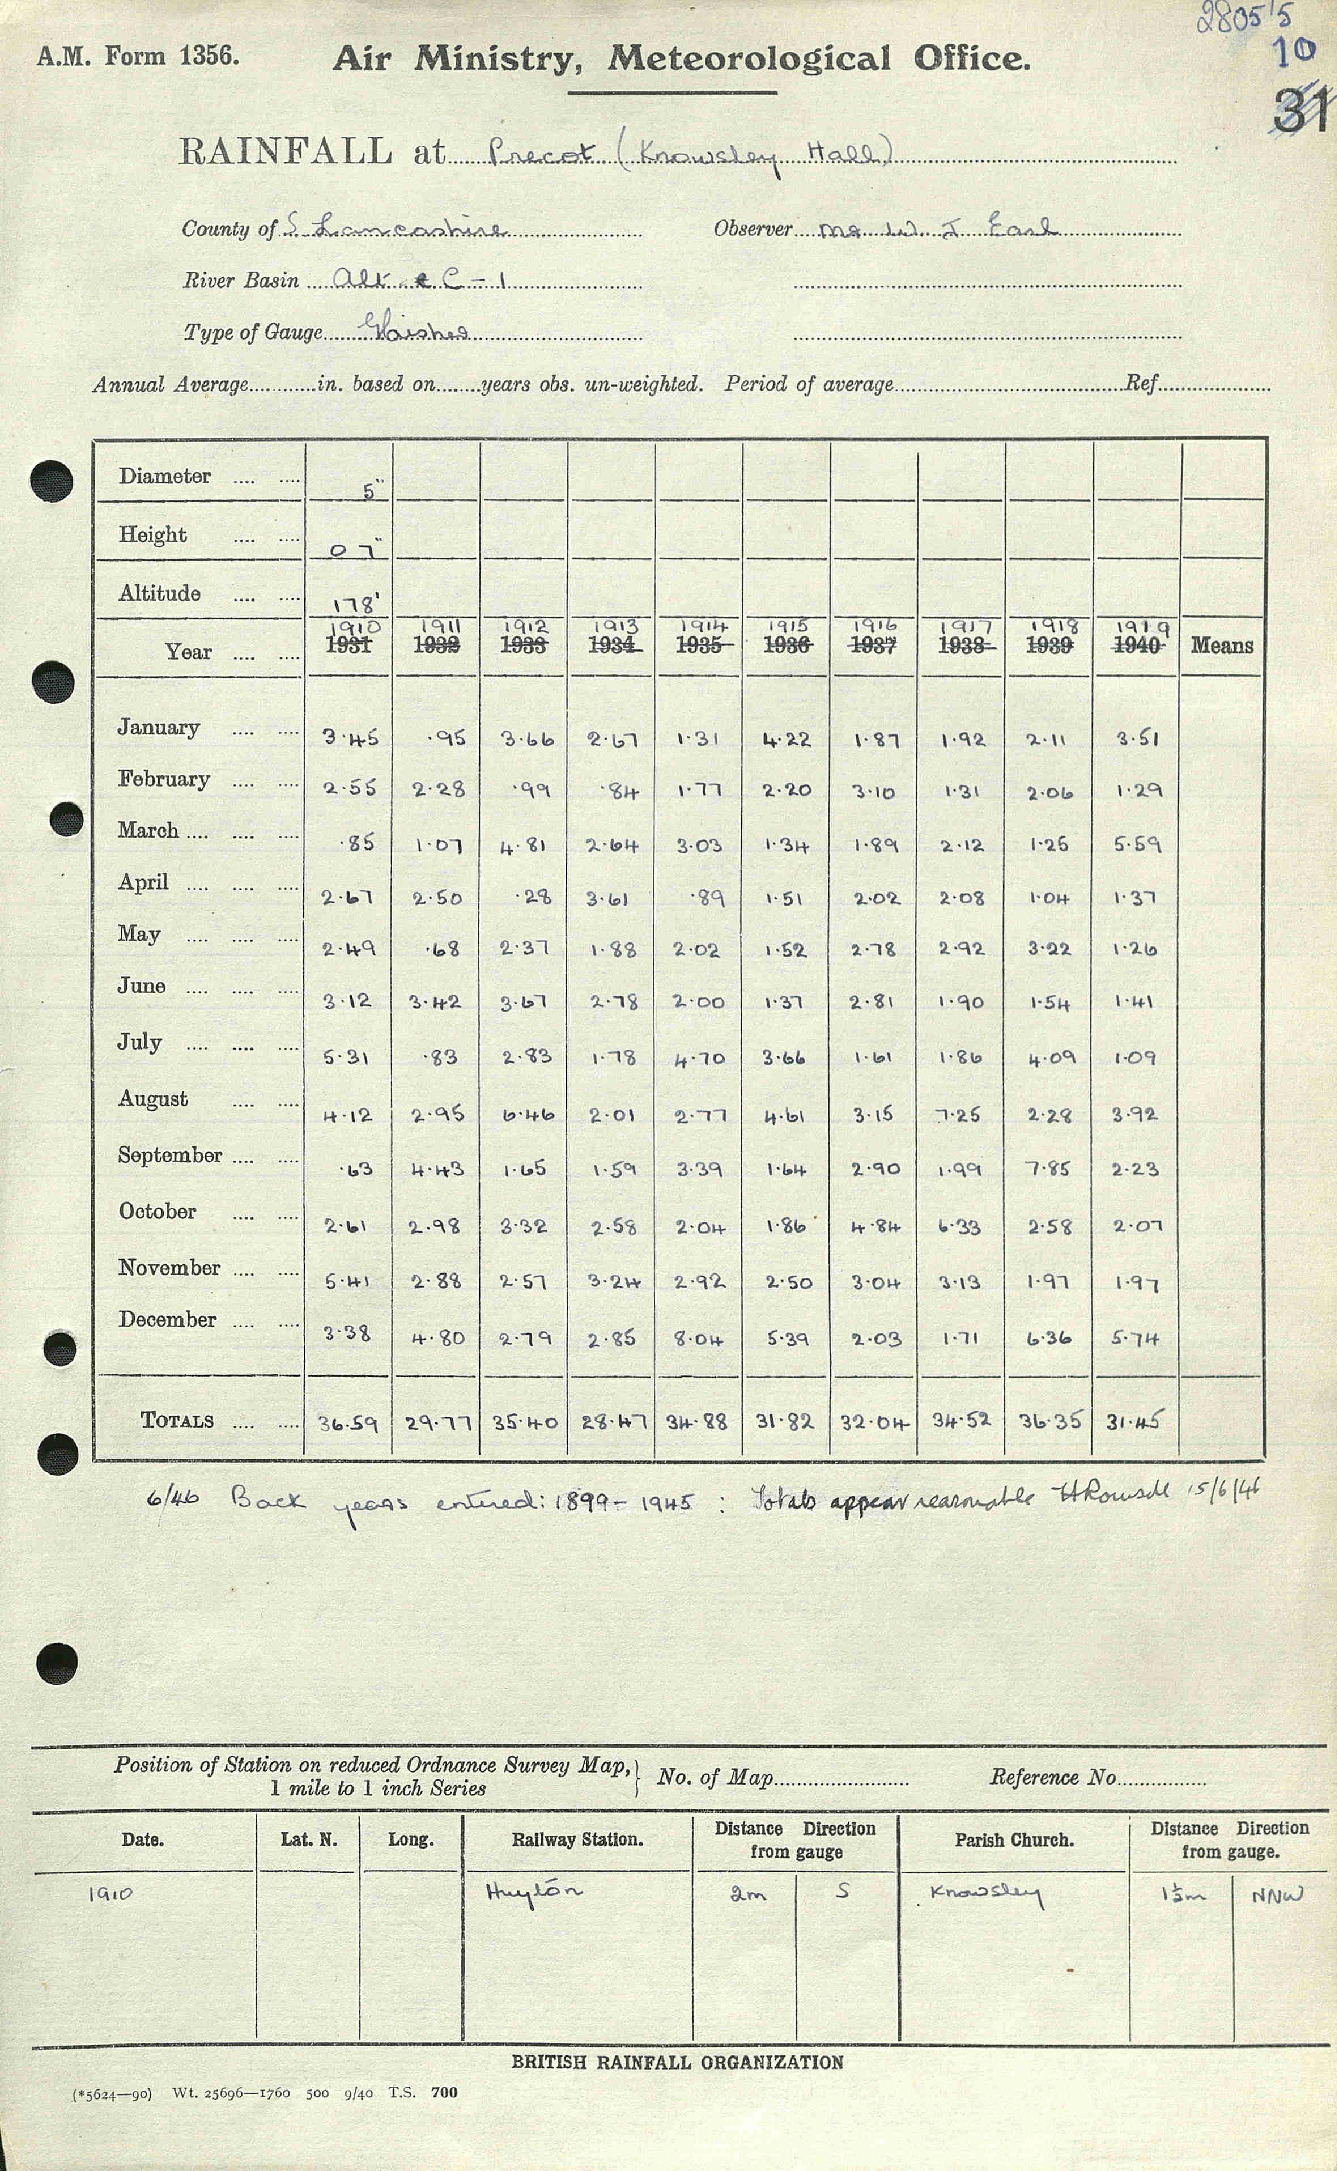 28055
10
31
A.M. Form 1356. Air Ministry, Meteorological Office.
RAINFALL at Precot (Knowsley Hall)
County of S Lancashire Observer Mr W. J Earl
River Basin Alt & C-1
Type of Gauge Glaisher
Annual Average............in. based on.......years obs. un-weighted. Period of average..............................Ref....................
Diameter .... .... 5"
Height .... .... 0 7"
Altitude .... .... 178'
1910 1911 1912 1913 1914 1915 1916 1917 1918 1919
Year .... .... 1931 1932 1933 1934 1935 1936 1937 1938 1939 1940 Means
January .... .... 3.45 .95 3.66 2.67 1.31 4.22 1.87 1.92 2.11 3.51
February .... .... 2.55 2.28 .99 .84 1.77 2.20 3.10 1.31 2.06 1.29
March .... .... .... .85 1.07 4.81 2.64 3.03 1.34 1.89 2.12 1.25 5.59
April .... .... .... 2.67 2.50 .28 3.61 .89 1.51 2.02 2.08 1.04 1.37
May .... .... .... 2.49 .68 2.37 1.88 2.02 1.52 2.78 2.92 3.22 1.26
June .... .... .... 3.12 3.42 3.67 2.78 2.00 1.37 2.81 1.90 1.54 1.41
July .... .... .... 5.31 .83 2.83 1.78 4.70 3.66 1.61 1.86 4.09 1.09
August .... .... 4.12 2.95 6.46 2.01 2.77 4.61 3.15 7.25 2.28 3.92
September .... .... .63 4.43 1.65 1.59 3.39 1.64 2.90 1.99 7.85 2.23
October .... .... 2.61 2.98 3.32 2.58 2.04 1.86 4.84 6.33 2.58 2.07
November .... .... 5.41 2.88 2.57 3.24 2.92 2.50 3.04 3.13 1.97 1.97
December .... .... 3.38 4.80 2.79 2.85 8.04 5.39 2.03 1.71 6.36 5.74
TOTALS .... .... 36.59 29.77 35.40 28.47 34.88 31.82 32.04 34.52 36.35 31.45
6/46 Back years entered: 1899-1945 : Totals appear reasonable 15/6/46
Position of Station on reduced Ordnance Survey Map, 1 mile to 1 inch Series } No. of Map........................ Reference No................
Date. Lat. N. Long. Railway Station. Distance Direction from gauge Parish Church. Distance Direction from gauge.
1910 Huyton 2m S Knowsley 1½m NNW
BRITISH RAINFALL ORGANIZATION
(*5624—90) Wt. 25696—1760 500 9/40 T.S. 700